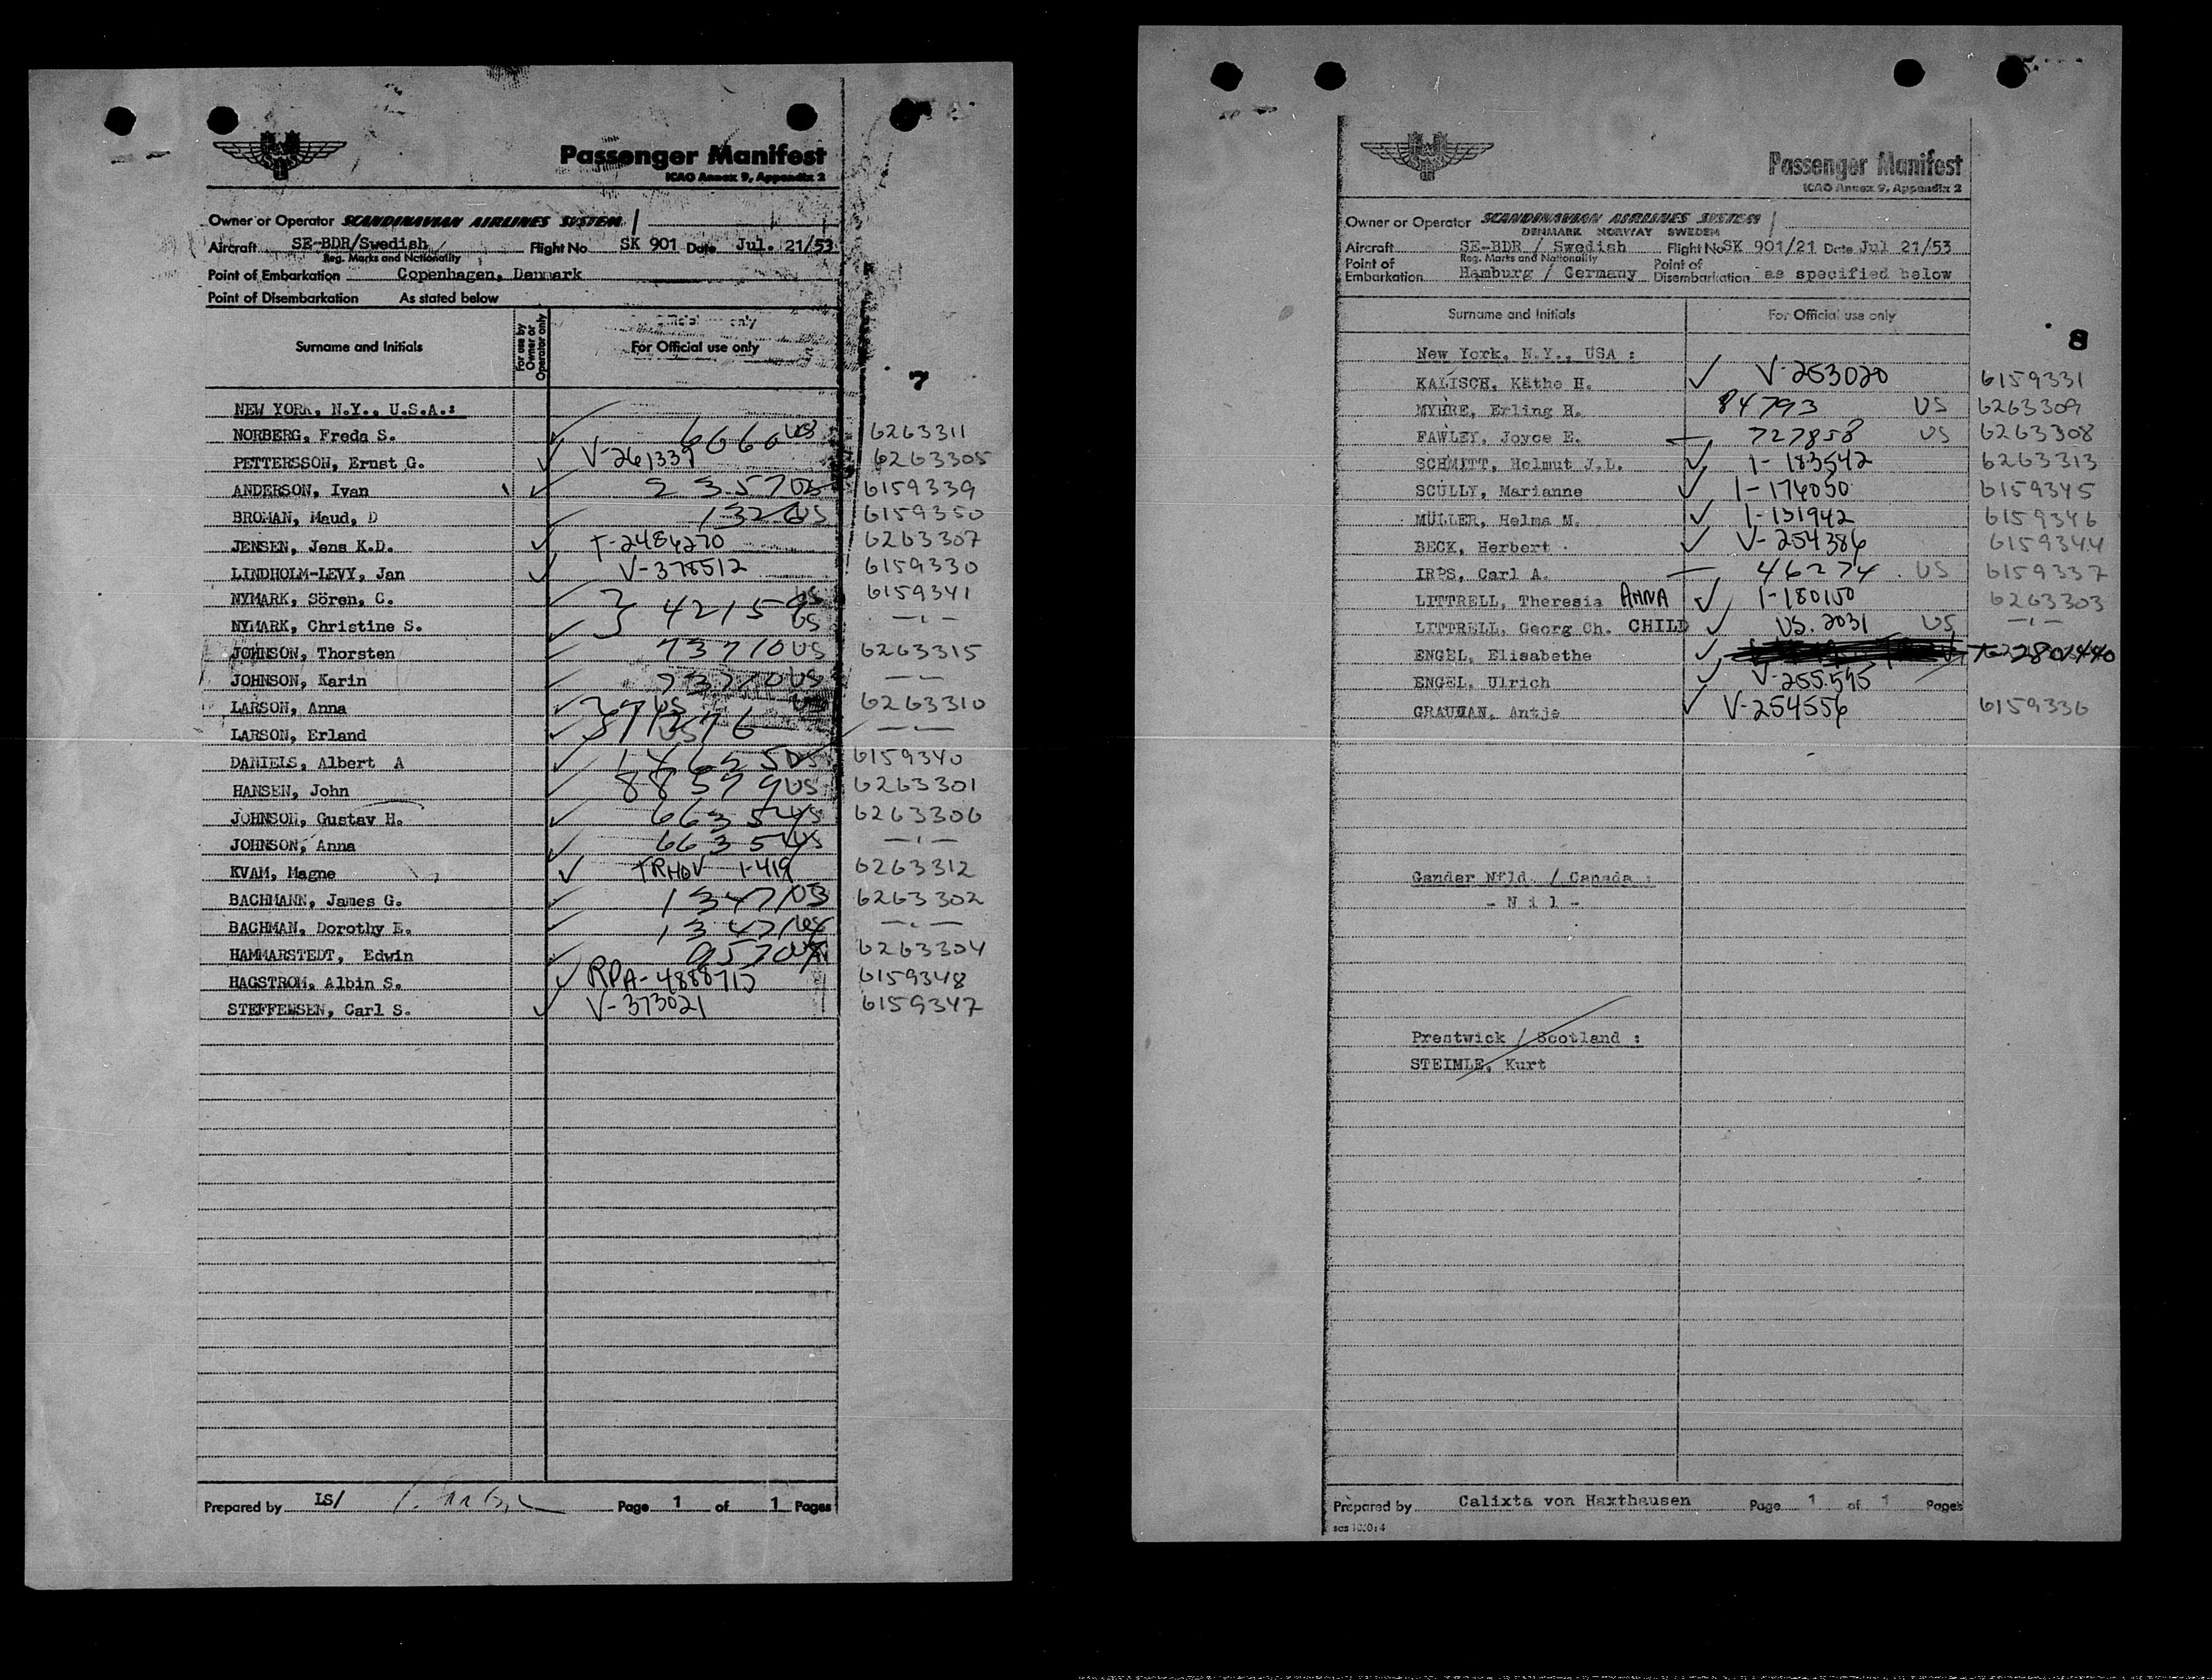 Passenger Manifest
ICAO Annex 9, Appendix 2
Owner or Operator SCANDINAVIAN AIRLINES SYSTEM
Aircraft SE-BDR/Swedish Flight No SK 901 Date Jul. 21/53
Reg. Marks and Nationality
Point of Embarkation Copenhagen, Denmark
Point of Disembarkation As stated below
Surname and Initials For use by Owner or Operator only For Official use only
7
NEW YORK, N.Y., U.S.A.:
NORBERG, Freda S. 6660 US 6263311
PETTERSSON, Ernst G. V-261339 6263305
ANDERSON, Ivan 23570 US 6159339
BROMAN, Maud, D 1326 US 6159350
JENSEN, Jens K.D. T-2484270 6263307
LINDHOLM-LEVY, Jan V-378512 6159330
NYMARK, Sören, C. 42159 US 6159341
NYMARK, Christine S. US —"—
JOHNSON, Thorsten 73710 US 6263315
JOHNSON, Karin 73710 US —"—
LARSON, Anna US 6263310
LARSON, Erland US —"—
DANIELS, Albert A US 6159340
HANSEN, John 88579 US 6263301
JOHNSON, Gustav H. 66354 US 6263306
JOHNSON, Anna 66354 US —"—
KVAM, Magne 1-419 6263312
BACHMANN, James G. 13471 US 6263302
BACHMAN, Dorothy E. 13471 US —"—
HAMMARSTEDT, Edwin 6263304
HAGSTROM, Albin S. RPA-4888715 6159348
STEFFENSEN, Carl S. V-373021 6159347
Prepared by LS/ Page 1 of 1 Pages
Passenger Manifest
ICAO Annex 9, Appendix 2
Owner or Operator SCANDINAVIAN AIRLINES SYSTEM
DENMARK NORWAY SWEDEN
Aircraft SE-BDR / Swedish Flight No SK 901/21 Date Jul 21/53
Reg. Marks and Nationality
Point of Embarkation Hamburg / Germany Point of Disembarkation as specified below
Surname and Initials For Official use only
8
New York, N.Y., USA :
KALISCH, Käthe H. V-253020 6159331
MYHRE, Erling H. 84793 US 6263309
FAWLEY, Joyce E. 727858 US 6263308
SCHMITT, Helmut J.L. I-183542 6263313
SCULLY, Marianne I-174050 6159345
MÜLLER, Helma M. I-131942 6159346
BECK, Herbert V-254386 6159344
IRPS, Carl A. 46274 US 6159337
LITTRELL, Theresia ANNA I-180150 6263303
LITTRELL, Georg Ch. CHILD US. 2031 US —"—
ENGEL, Elisabethe
ENGEL, Ulrich V-255595
GRAUMAN, Antje V-254556 6159336
Gander Nfld. / Canada :
- N i l -
Prestwick / Scotland :
STEIMLE, Kurt
Prepared by Calixta von Haxthausen Page 1 of 1 Pages